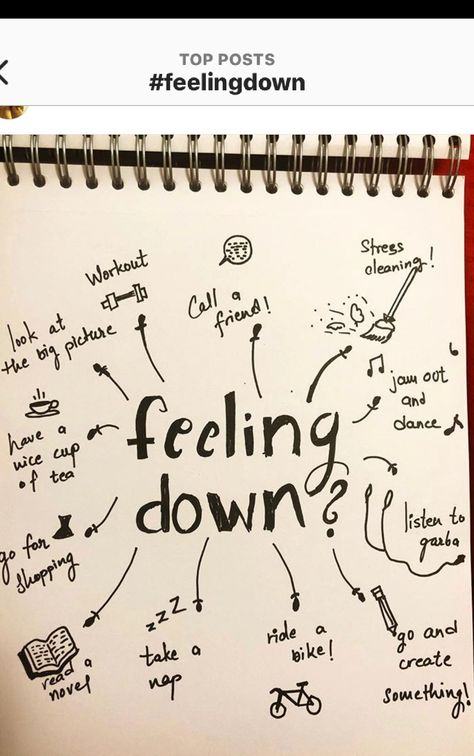 TOP POSTS
#feelingdown
Workout
Call a
friend!
Stress
cleaning!
look at
the big picture
jam out
and
dance
have a
nice cup
of tea
feeling
down?
listen to
garba
go for
shopping
read a
novel
zzz
take a
nap
ride a
bike!
go and
create
something!